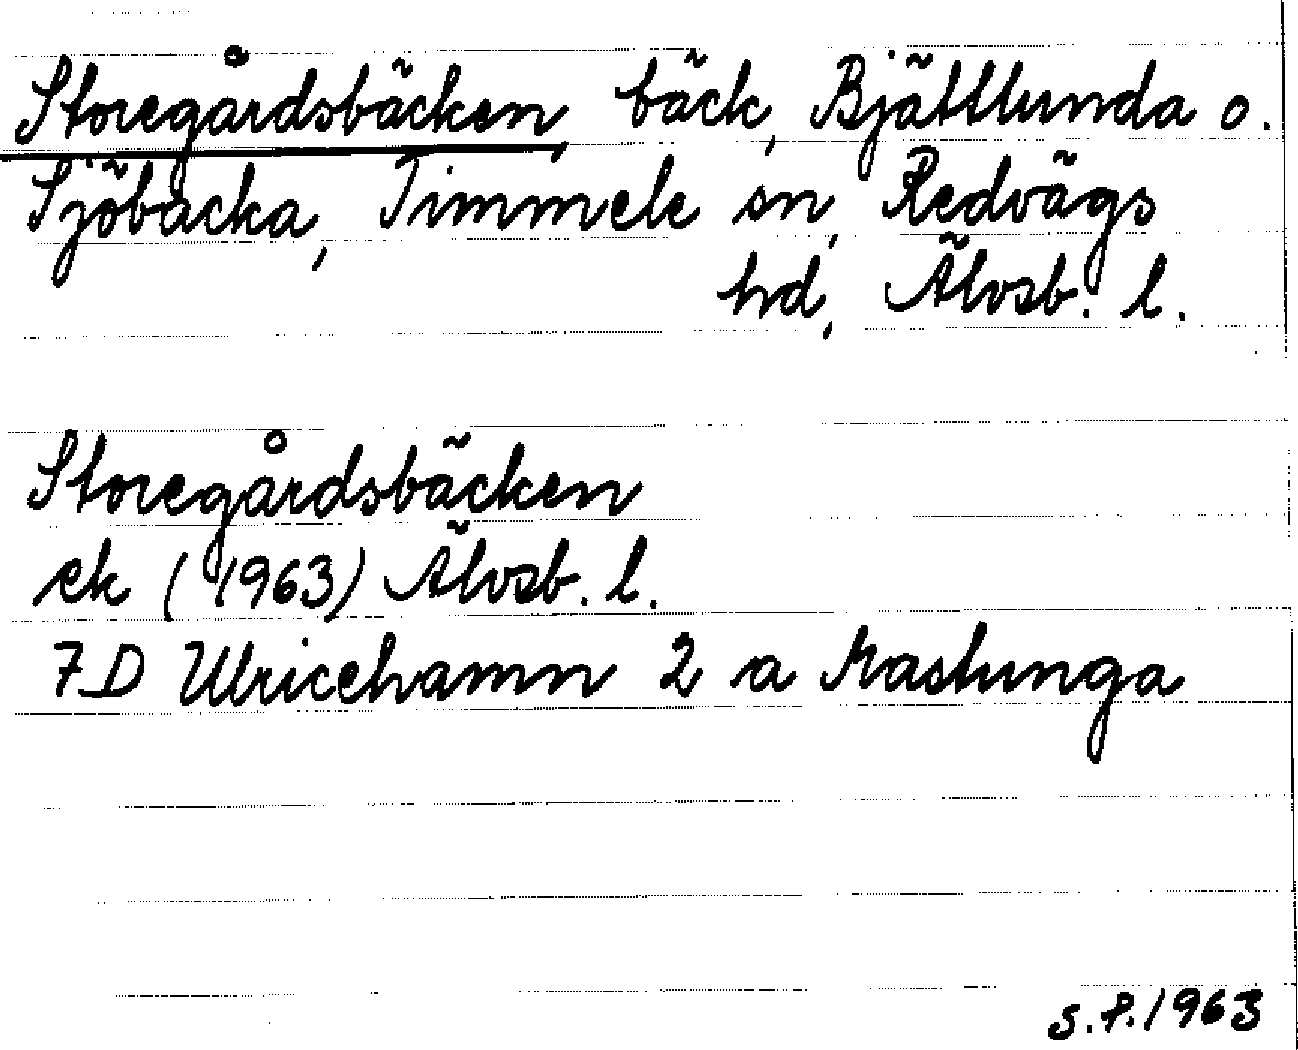 Storegårdsbäcken, bäck, Bjättlunda o.
Sjöbacka, Timmele sn, Redvägs
hd, Älvsb. l.
Storegårdsbäcken
ek (1963) Älvsb. l.
7D Ulricehamn 2 a Kaslunga
S.P. 1963